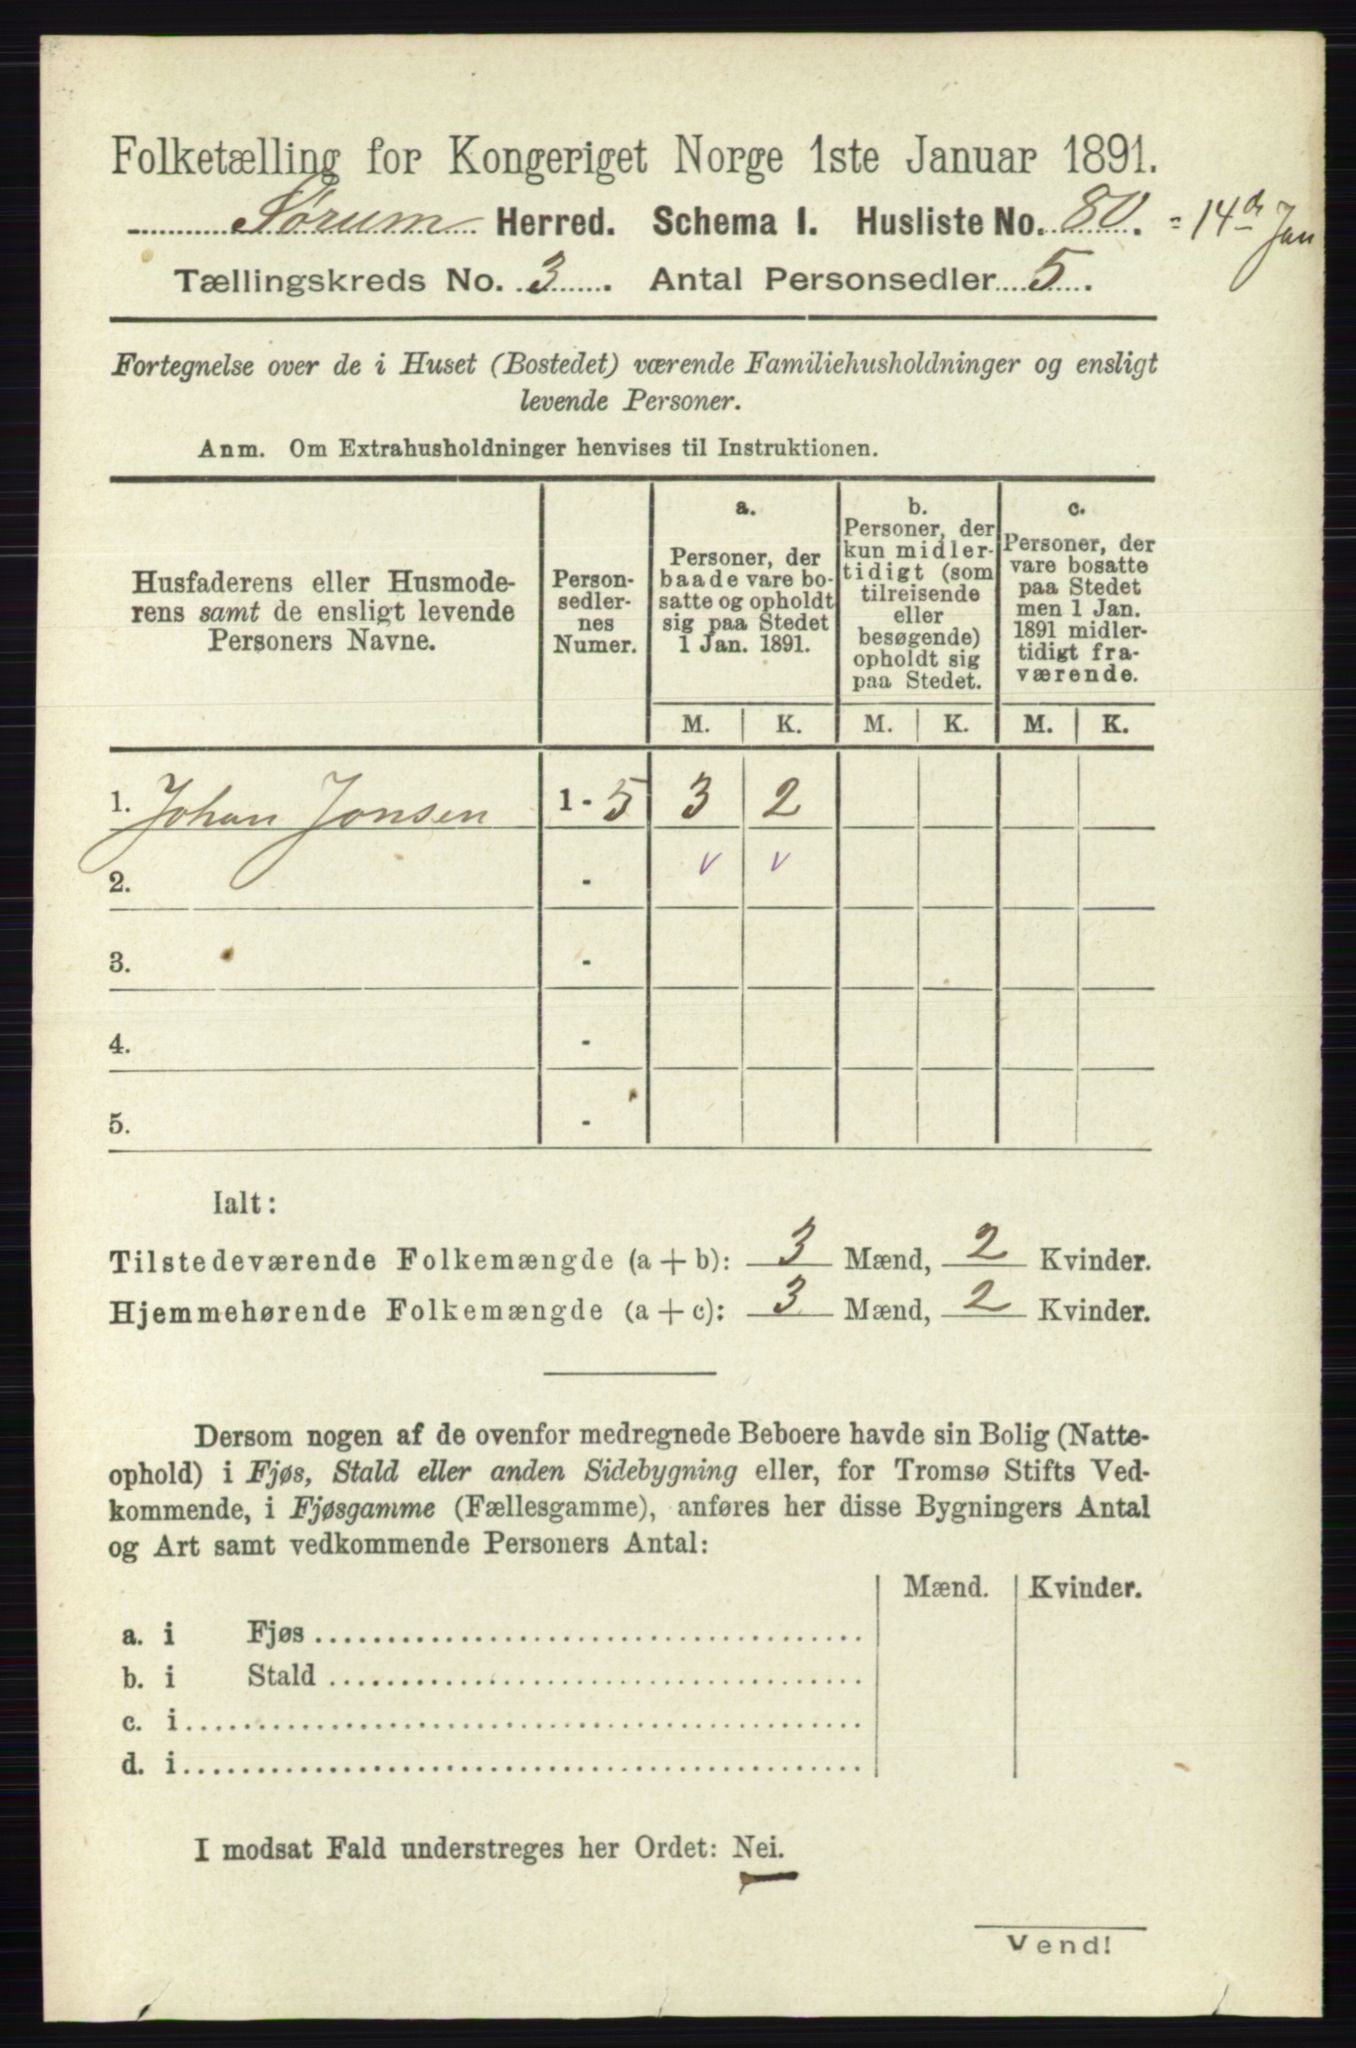 Folketælling for Kongeriget Norge 1ste Januar 1891.
Sørum Herred. Schema I. Husliste No. 80. = 14de Jan
Tællingskreds No. 3. Antal Personsedler 5.
Fortegnelse over de i Huset (Bostedet) værende Familiehusholdninger og ensligt
levende Personer.
Anm. Om Extrahusholdninger henvises til Instruktionen.
Husfaderens eller Husmode-
rens samt de ensligt levende
Personers Navne.
Person-
sedler-
nes
Numer.
a.
Personer, der
baade vare bo-
satte og opholdt
sig paa Stedet
1 Jan. 1891.
b.
Personer, der
kun midler-
tidigt (som
tilreisende
eller
besøgende)
opholdt sig
paa Stedet.
c.
Personer, der
vare bosatte
paa Stedet
men 1 Jan.
1891 midler-
tidigt fra-
værende.
M. K. M. K. M. K.
1. Johan Jonsen 1 - 5 3 2
2. - v v
3. -
4. -
5. -
Ialt:
Tilstedeværende Folkemængde (a + b): 3 Mænd, 2 Kvinder.
Hjemmehørende Folkemængde (a + c): 3 Mænd, 2 Kvinder.
Dersom nogen af de ovenfor medregnede Beboere havde sin Bolig (Natte-
ophold) i Fjøs, Stald eller anden Sidebygning eller, for Tromsø Stifts Ved-
kommende, i Fjøsgamme (Fællesgamme), anføres her disse Bygningers Antal
og Art samt vedkommende Personers Antal:
Mænd. Kvinder.
a. i Fjøs
b. i Stald
c. i
d. i
I modsat Fald understreges her Ordet: Nei.
Vend!